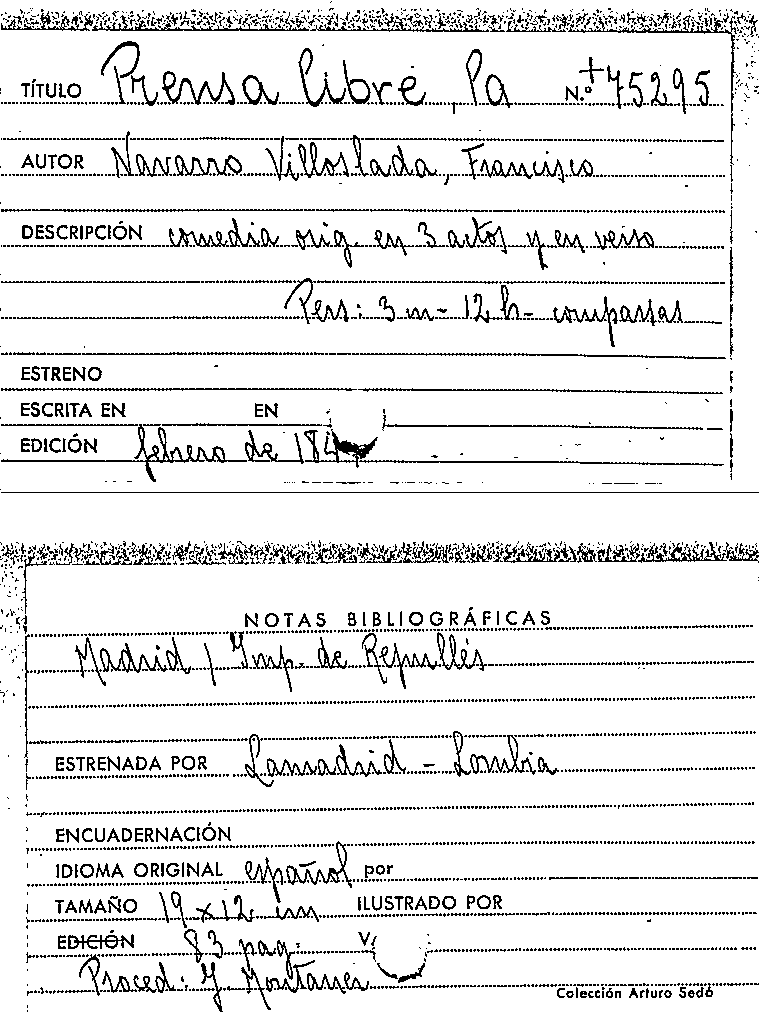 TÍTULO Prensa libre, la N.º +75295
AUTOR Navarro Villoslada, Francisco
DESCRIPCIÓN comedia orig. en 3 actos y en verso
Pers: 3 m - 12 h - comparsas
ESTRENO
ESCRITA EN EN
EDICIÓN febrero de 184
NOTAS BIBLIOGRÁFICAS
Madrid / Imp. de Repullés
ESTRENADA POR Lamadrid - Lombia
ENCUADERNACIÓN
IDIOMA ORIGINAL español por
TAMAÑO 19 x 12 cm ILUSTRADO POR
EDICIÓN 83 pag. V
Proced: Montaner
Colección Arturo Sedó